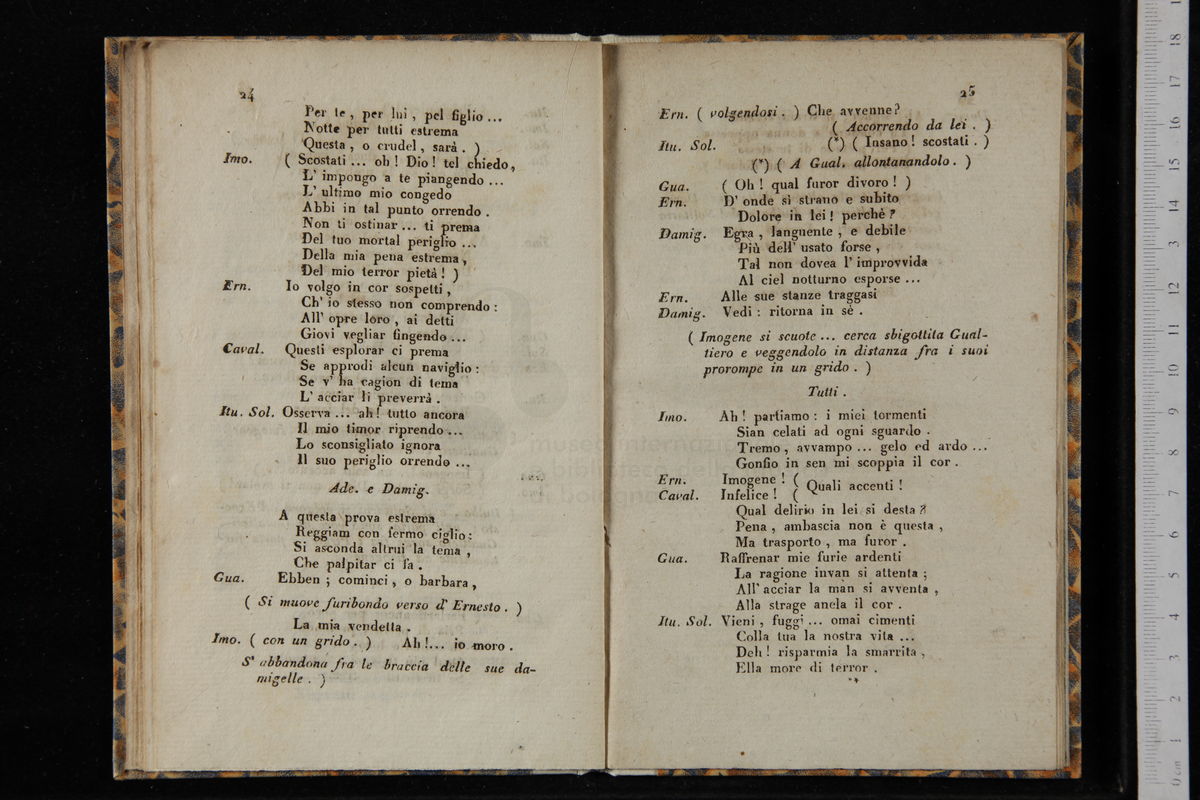 24
Per te, per lui, pel figlio...
Notte per tutti estrema
Questa, o crudel, sarà. )
Imo. ( Scostati... oh! Dio! tel chiedo,
L' impongo a te piangendo...
L' ultimo mio congedo
Abbi in tal punto orrendo.
Non ti ostinar... ti prema
Del tuo mortal periglio...
Della mia pena estrema,
Del mio terror pietà! )
Ern. Io volgo in cor sospetti,
Ch' io stesso non comprendo:
All' opre loro, ai detti
Giovi vegliar fingendo...
Caval. Questi esplorar ci prema
Se approdi alcun naviglio:
Se v' ha cagion di tema
L' acciar li preverrà.
Itu. Sol. Osserva... ah! tutto ancora
Il mio timor riprendo...
Lo sconsigliato ignora
Il suo periglio orrendo...
Ade. e Damig.
A questa prova estrema
Reggiam con fermo ciglio:
Si asconda altrui la tema,
Che palpitar ci fa.
Gua. Ebben; cominci, o barbara,
( Si muove furibondo verso d' Ernesto. )
La mia vendetta.
Imo. ( con un grido. ) Ah!... io moro.
S' abbandona fra le braccia delle sue da-
migelle. )
25
Ern. ( volgendosi. ) Che avvenne?
( Accorrendo da lei. )
Itu. Sol. (*) ( Insano! scostati. )
(*) ( A Gual. allontanandolo. )
Gua. ( Oh! qual furor divoro! )
Ern. D' onde sì strano e subito
Dolore in lei! perchè?
Damig. Egra, languente, e debile
Più dell' usato forse,
Tal non dovea l' improvvida
Al ciel notturno esporse...
Ern. Alle sue stanze traggasi
Damig. Vedi: ritorna in sè.
( Imogene si scuote... cerca sbigottita Gual-
tiero e veggendolo in distanza fra i suoi
prorompe in un grido. )
Tutti.
Imo. Ah! partiamo: i miei tormenti
Sian celati ad ogni sguardo.
Tremo, avvampo... gelo ed ardo...
Gonfio in sen mi scoppia il cor.
Ern. Imogene! (
Caval. Infelice! ( Quali accenti!
Qual delirio in lei si desta?
Pena, ambascia non è questa,
Ma trasporto, ma furor.
Gua. Raffrenar mie furie ardenti
La ragione invan si attenta;
All' acciar la man si avventa,
Alla strage anela il cor.
Itu. Sol. Vieni, fuggi... omai cimenti
Colla tua la nostra vita...
Deh! risparmia la smarrita,
Ella more di terror.
**